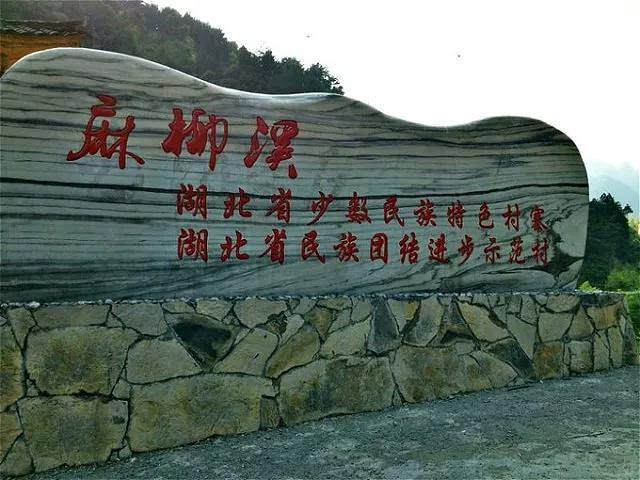 麻柳溪
湖北省少数民族特色村寨
湖北省民族团结进步示范村